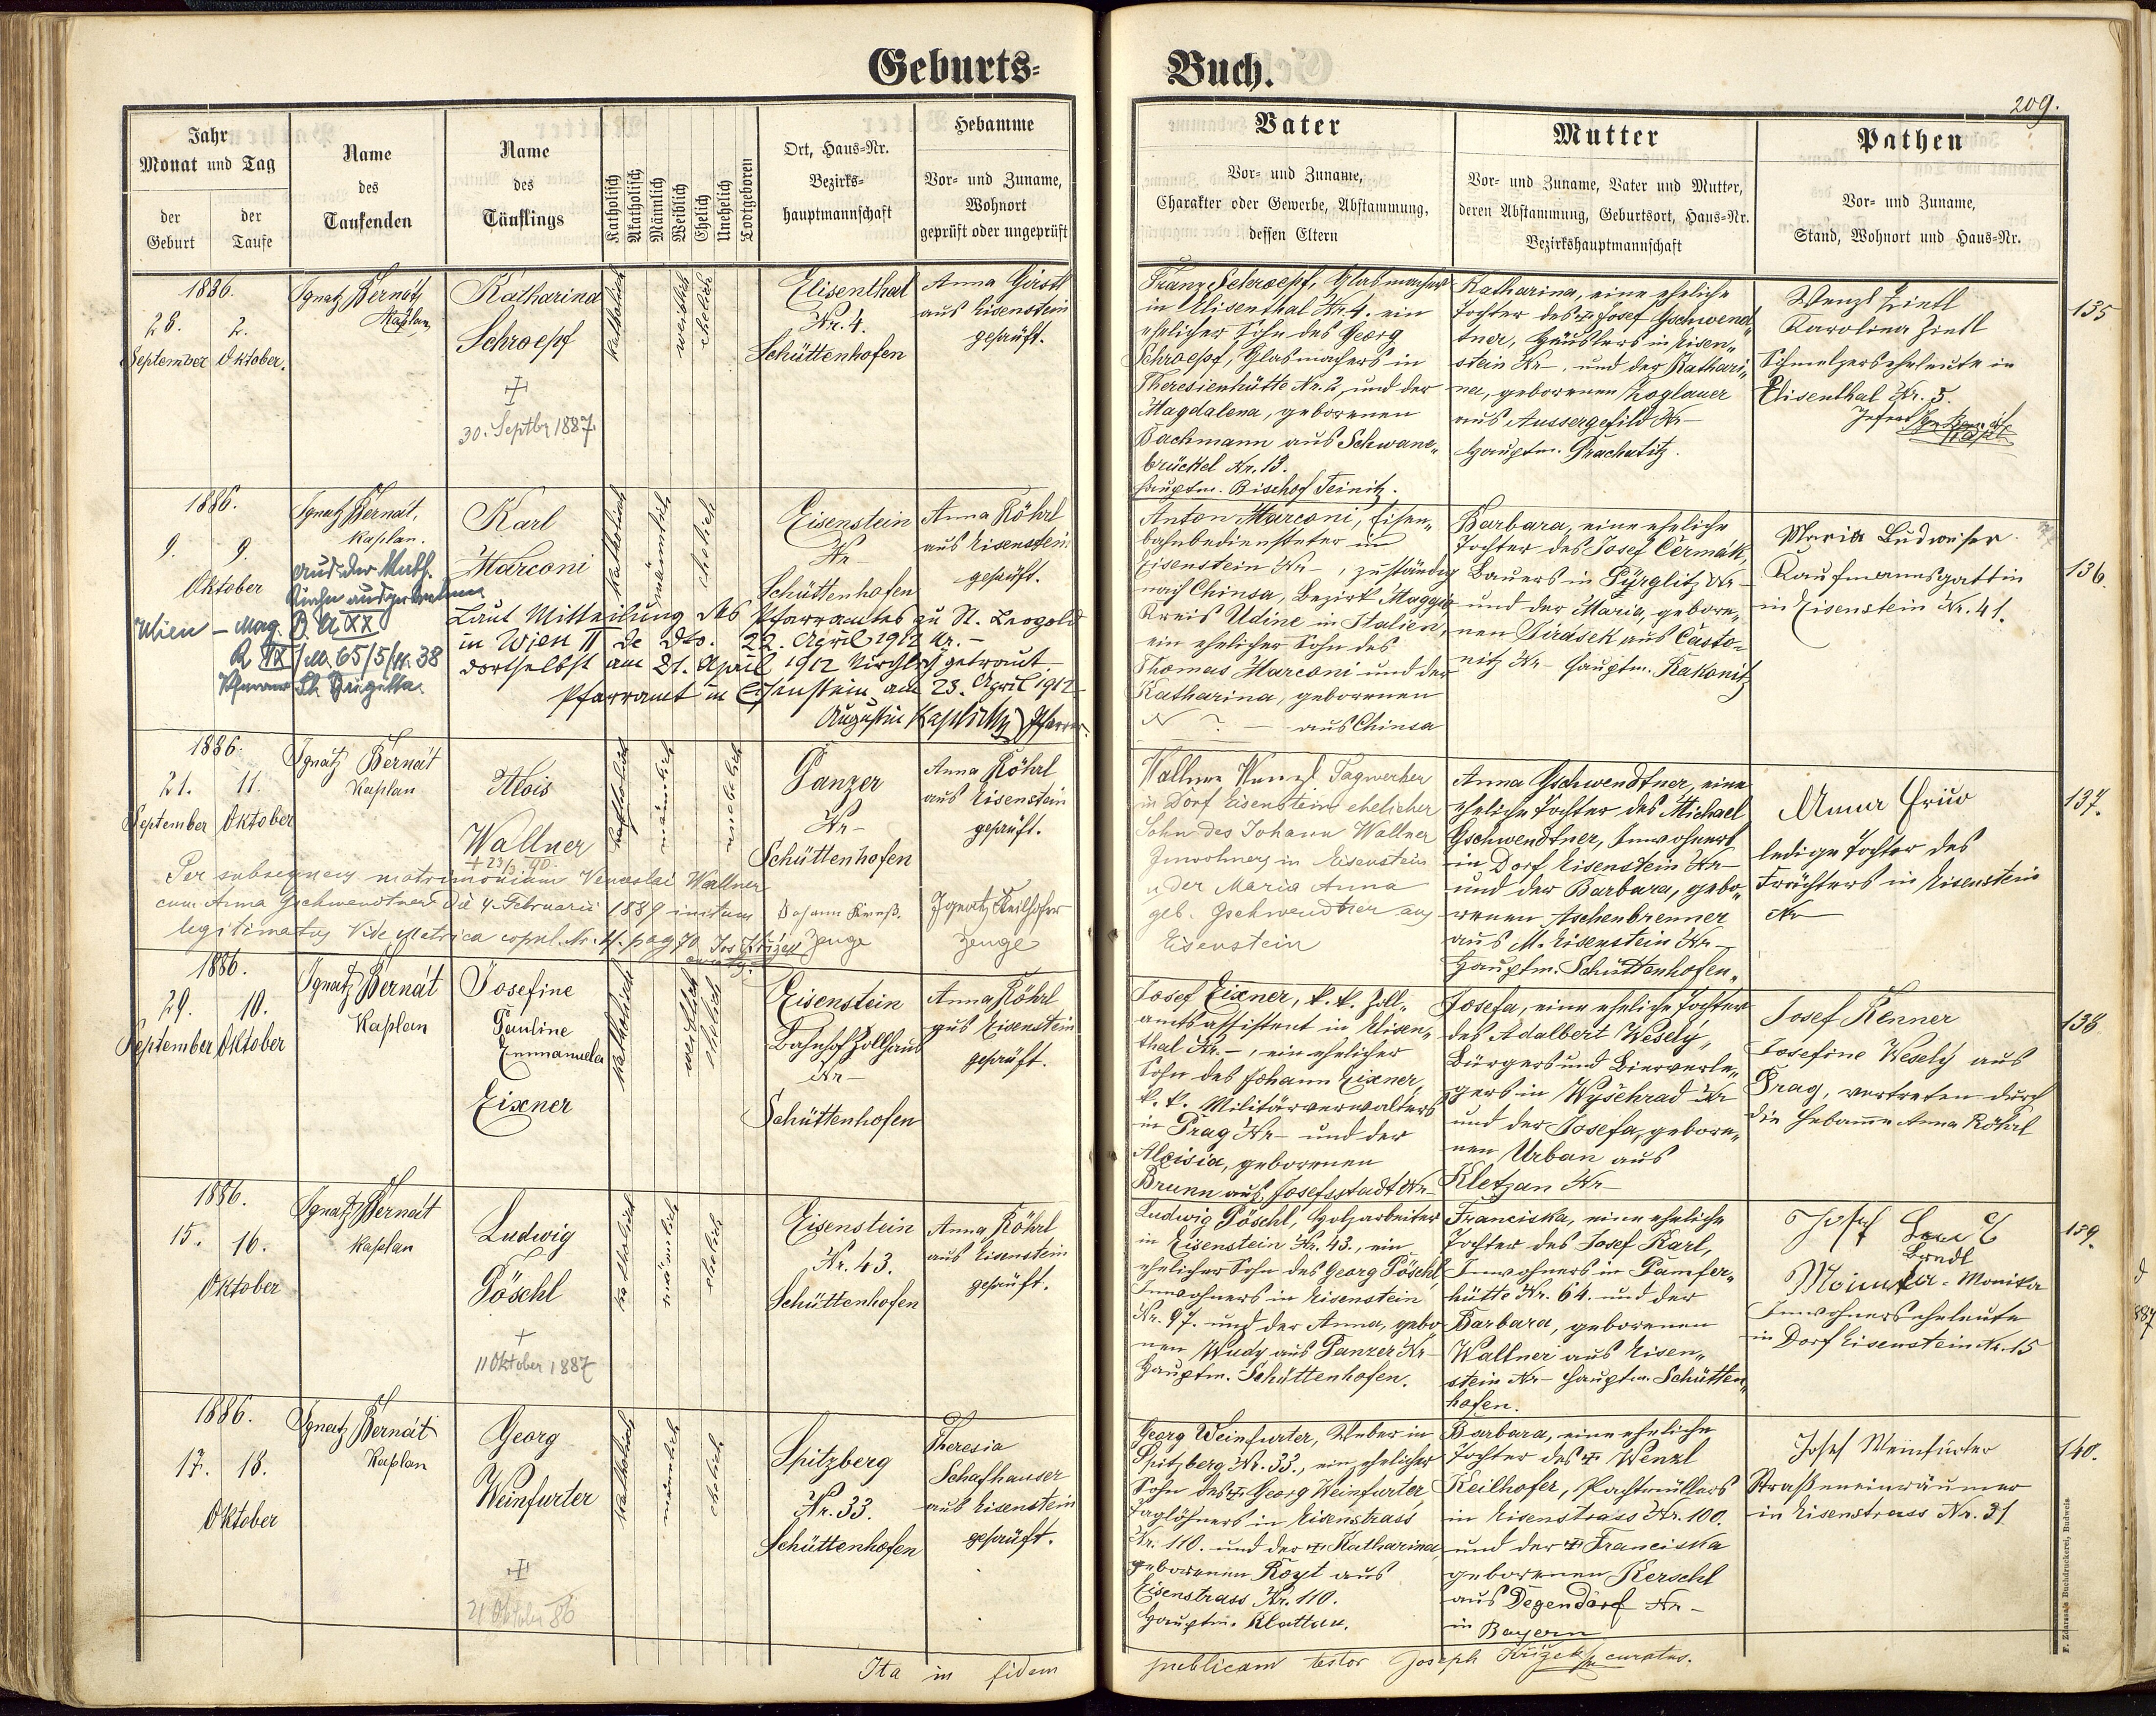 Geburts= Buch.
209.
Jahr
Monat und Tag
der Geburt
der Taufe
Name
des
Taufenden
Name
des
Täuflings
Katholisch
Akatholisch
Männlich
Weiblich
Ehelich
Unehelich
Todtgeboren
Ort, Haus=Nr.
Bezirks=
hauptmannschaft
Hebamme
Vor= und Zuname,
Wohnort
geprüft oder ungeprüft
Vater
Vor= und Zuname,
Charakter oder Gewerbe, Abstammung,
dessen Eltern
Mutter
Vor= und Zuname, Vater und Mutter,
deren Abstammung, Geburtsort, Haus=Nr.
Bezirkshauptmannschaft
Pathen
Vor= und Zuname,
Stand, Wohnort und Haus=Nr.
1886.
28. 2.
September Oktober.
Ignatz Bernát
Kaplan
Katharina
Schroepf
30. Septbr 1887.
katholisch
weiblich
ehelich
Elisenthal
Nr. 4.
Schüttenhofen
Anna Girstl
aus Eisenstein
geprüft.
Franz Schroepf, Glasmacher
in Elisenthal Nr. 4. ein
ehelicher Sohn des Georg
Schroepf, Glasmachers in
Theresienhütte Nr. 2, und der
Magdalena, geborenen
Bachmann aus Schwane„
brückel Nr. 13.
Hauptm. Bischof Teinitz.
Katharina, eine eheliche
Tochter des Josef Gschwend„
tner, Häuslers in Eisen„
stein Nr – und der Kathari„
na, geborenen Koglauer
aus Aussergefild Nr –
Hauptm. Prachatitz.
Wenzl Zintl
Karolina Zintl
Schmelzerseheleute in
Elisenthal Nr. 5.
135
1886.
9. 9.
Oktober
Ignatz Bernát,
Kaplan.
aus der kath.
Kirche ausgetreten
Wien – Mag. B. A XX
R IX/M. 65/5/II. 38
Pfarramt St. Brigitta.
Karl
Marconi
katholisch
männlich
ehelich
Eisenstein
Nr –
Schüttenhofen
Anna Röhrl
aus Eisenstein
geprüft.
Laut Mitteilung des Pfarramtes zu St. Leopold
in Wien II de dto. 22. April 1912 Nr. –
dortselbst am 21. April 1912 kirchlich getraut.
Pfarramt in Eisenstein am 23. April 1912
Augustin Pfarrer.
Anton Marconi, Eisen„
bahnbediensteter in
Eisenstein Nr – , zuständig
nach Chinsa, Bezirk Maggio
Kreis Udine in Italien,
ein ehelicher Sohn des
Thomas Marconi und der
Katharina, geborenen
N ? – aus Chinsa
Barbara, eine eheliche
Tochter des Josef Čermák,
Bauers in Pürglitz Nr –
und der Maria, gebore„
nen Jirásek aus Často„
nitz Nr – Hauptm. Rakonitz
Maria Ludwiser
Kaufmannsgattin
in Eisenstein Nr. 41.
136.
1886.
21. 11.
September Oktober
Ignatz Bernát
Kaplan
Alois
Wallner
+ 23/3 90.
katholisch
männlich
unehelich
Panzer
Nr –
Schüttenhofen
Anna Röhrl
aus Eisenstein
geprüft.
Per subsequens matrimonium Venceslai Wallner
cum Anna Gschwendtner die 4. Februarii 1889 initum
legitimatus Vide Matrica copul. Nr. 4. pag 70
Johann
Zeuge
Ignatz Keilhofer
Zeuge
Wallner Wenzl Tagwerker
in Dorf Eisenstein ehelicher
Sohn des Johann Wallner
Inwohners in Eisenstein
u der Maria Anna
geb. Gschwendtner aus
Eisenstein
Anna Gschwendtner, eine
eheliche Tochter des Michael
Gschwendtner, Inwohners
in Dorf Eisenstein Nr –
und der Barbara, gebo„
renen Aschenbrenner
aus M. Eisenstein Nr –
Hauptm. Schüttenhofen„
Anna
ledige Tochter des
in Eisenstein
Nr –
137.
1886.
29. 10.
September Oktober
Ignatz Bernát
Kaplan
Josefine
Pauline
Emmanuela
Eixner
katholisch
weiblich
ehelich
Eisenstein
Bahnhof Zollhaus
Nr –
Schüttenhofen
Anna Röhrl
aus Eisenstein
geprüft.
Josef Eixner, k. k. Zoll„
amtsassistent in Elisen„
thal Nr. –, ein ehelicher
Sohn des Johann Eixner,
k. k. Militärverwalters
in Prag Nr – und der
Aloisia, geborenen
Brunn aus Josefsstadt Nr –
Josefa, eine eheliche Tochter
des Adalbert Wesely,
Bürgers und Bierverle„
gers in Wyschrad Nr
und der Josefa, gebore„
nen Urban aus
Kletzan Nr –
Josef Renner
Josefine Wesely aus
Prag, vertreten durch
die Hebamme Anna Röhrl
138
1886.
15. 16.
Oktober
Ignatz Bernát
Kaplan
Ludwig
Pöschl
+
11 Oktober 1887
katholisch
männlich
ehelich
Eisenstein
Nr. 43.
Schüttenhofen
Anna Röhrl
aus Eisenstein
geprüft.
Ludwig Pöschl, Holzarbeiter
in Eisenstein Nr. 43., ein
ehelicher Sohn des Georg Pöschl,
Inwohners in Eisenstein
Nr. 97. und der Anna, gebo„
nen Wudy aus Panzer Nr –
Hauptm. Schüttenhofen.
Franciska, eine eheliche
Tochter des Josef Karl,
Inwohners in Pamfer„
hütte Nr. 64. und der
Barbara, geborenen
Wallner aus Eisen„
stein Nr – Hauptm. Schütten„
hofen.
Josef
Brndl
Monika
Inwohnerseheleute
in Dorf Eisenstein Nr. 15
139.
1886.
17. 18.
Oktober
Ignatz Bernát
Kaplan
Georg
Weinfurter
21 Oktober 86
katholisch
männlich
ehelich
Spitzberg
Nr. 33.
Schüttenhofen
Theresia
Schafhauser
aus Eisenstein
geprüft.
Georg Weinfurter, Weber in
Spitzberg Nr. 33., ein ehelicher
Sohn des Georg Weinfurter,
Taglöhners in Eisenstrass
Nr. 110. und der Katharina,
geborenen Royt aus
Eisenstrass Nr. 110.
Hauptm. Klattau.
Barbara, eine eheliche
Tochter des Wenzl
Keilhofer, Pachtmüllers
in Eisenstrass Nr. 100.
und der Franciska
geborenen Kerschl
aus Degendorf Nr –
in Bayern
Josef Weinfurter
Straßeneinräumer
in Eisenstrass Nr. 31
140.
Ita in fidem publicam testor Joseph Křižek curatus.
F. Zdarssa's Buchdruckerei, Budweis.